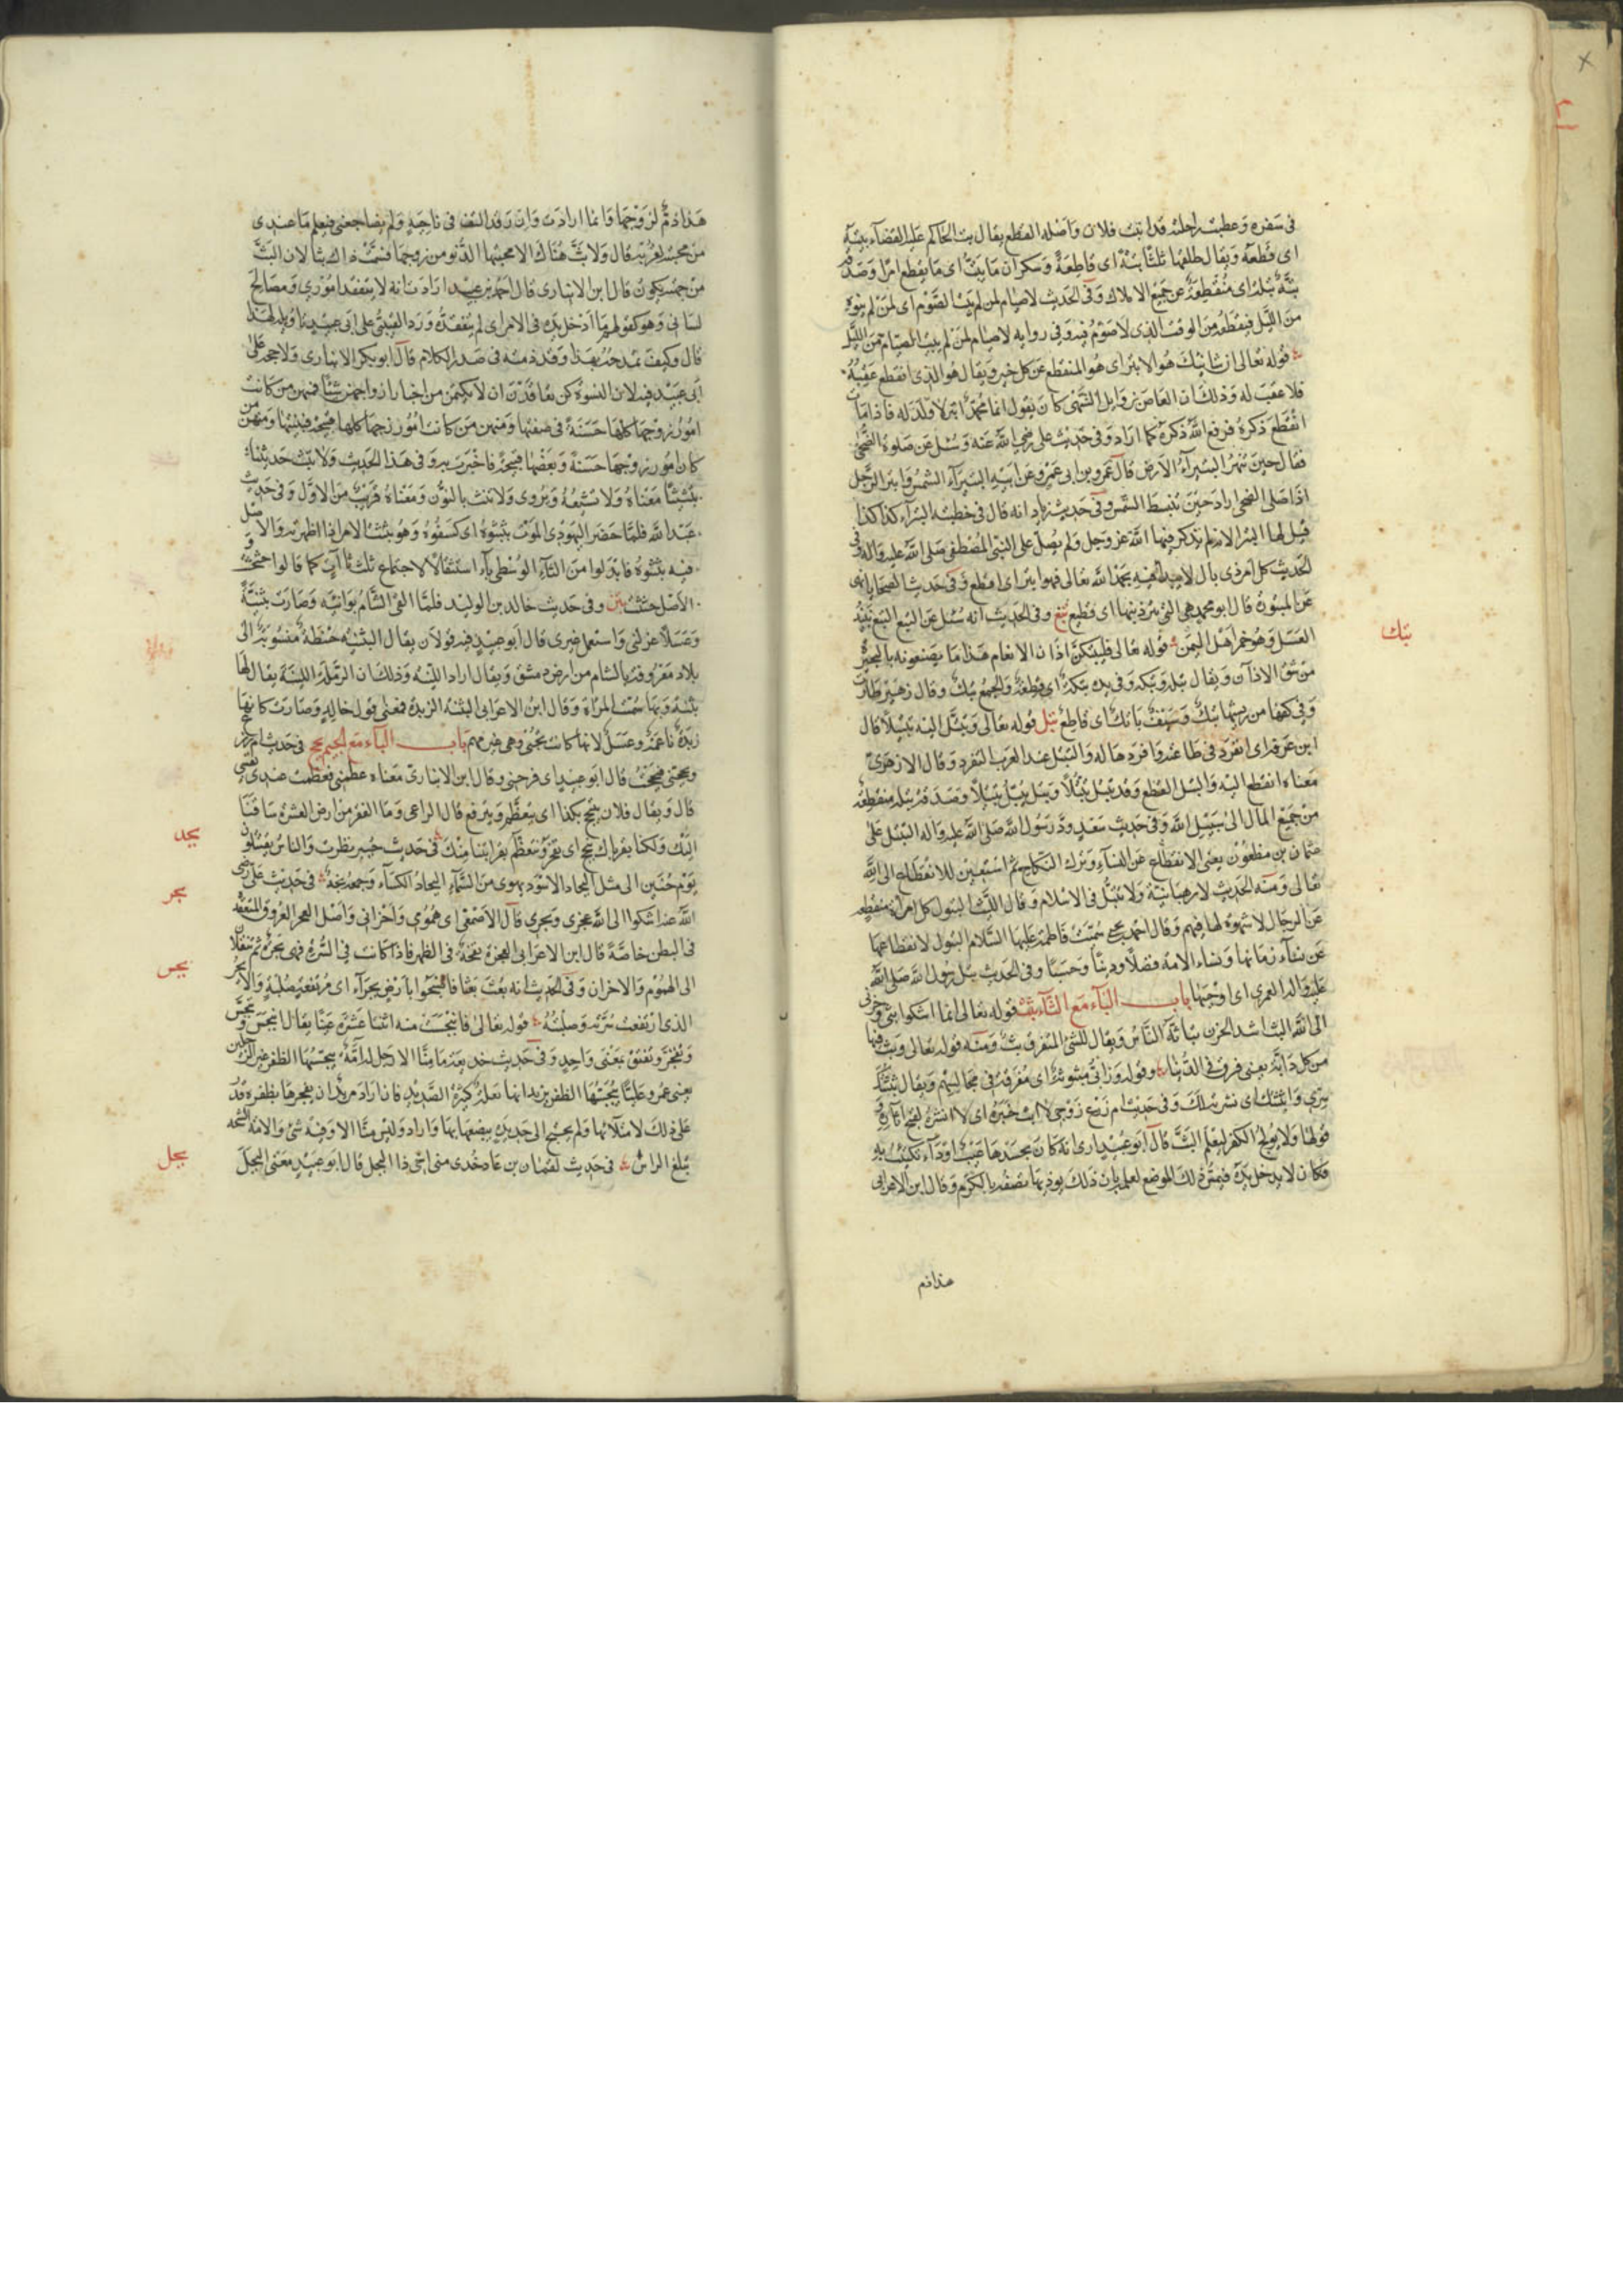 فى سفره وعطبت راحلته قد انبت فلان واصله القطع يقال بت الحاكم عليه القضاء بته
اى قطعه ويقال طلقها ثلثا بتة اى قاطعة وسكران ما يبت اى ما يقطع امرا وصدقة
بتة بتلة اى منقطعة عن جميع الاملاك وفى الحديث لا صيام لمن لم يبت الصوم اى لمن لم ينوه
من الليل فيقطعه من الوقت الذى لا صوم فيه وفى رواية لا صيام لمن لم يبيت الصيام من الليل
قوله تعالى ان شانئك هو الابتر اى هو المنقطع عن كل خير ويقال هو الذى انقطع عقبه
فلا عقب له وذلك ان العاص بن وايل السهمى كان يقول انما محمد ابتر لا ولد له فاذا مات
انقطع ذكره فرفع الله ذكره كما اراد وفى حديث على رضى الله عنه وسئل عن صلوة الضحى
فقال حين تبهر البتيراء الارض قال عمرو بن ابى عمرو عن ابيه البتيراء الشمس وابتر الرجل
اذا صلى الضحى اراد حين تنبسط الشمس وفى حديث زياد انه قال فى خطبته البتراء كذا كذا
قيل لها البتراء لانه لم يذكر فيها الله عز وجل ولم يصل على النبى المصطفى صلى الله عليه واله وفى
الحديث كل امر ذى بال لا يبدأ فيه بحمد الله تعالى فهو ابتر اى اقطع وفى حديث الضحايا نهى
عن المبتورة قال ابو محمد هى التى بتر ذنبها اى قطع بتع وفى الحديث انه سئل عن البتع البتع نبيذ
بتك
العسل وهو خمر اهل اليمن قوله تعالى فليبتكن اذان الانعام هذا ما يصنعونه بالبحيرة
من شق الاذان ويقال بتله وبتكه وفى يده بتكة اى قطعة والجمع بتك وقال زهير طارت
وفى كفه من ريشها بتك وسيف باتك اى قاطع بتل قوله تعالى وتبتل اليه تبتيلا قال
ابن عرفة اى انفرد فى طاعته وافردها له والتبتل عند العرب التفرد وقال الازهرى
معناه انقطع اليه والبتل القطع وقد تبتل تبتلا وبتل يبتل تبتيلا وصدقة بتلة منقطعة
من جميع المال الى سبيل الله وفى حديث سعد ود رسول الله صلى الله عليه واله التبتل على
عثمان بن مظعون يعنى الانقطاع عن النساء وترك النكاح ثم استعير للانقطاع الى الله
تعالى ومنه الحديث لا رهبانية ولا تبتل فى الاسلام وقال الليث البتول كل امراة منقطعة
عن الرجال لا شهوة لها فيهم وقال احمد بن يحيى سميت فاطمة عليها السلام البتول لانقطاعها
عن نساء زمانها ونساء الامة فضلا ودينا وحسبا وفى الحديث بتل رسول الله صلى الله
عليه واله العمرى اى اوجبها باب الباء مع الثاء بثث قوله تعالى انما اشكوا بثى وحزنى
الى الله البث اشد الحزن يباثه الناس ويقال للشئ المتفرق بث ومنه قوله تعالى وبث فيها
من كل دابة يعنى فرق فى الدنيا وقوله وزرابى مبثوثة اى مفرقة فى مجالسهم ويقال بثثتك
سرى وابثثتك اى نشرته لك وفى حديث ام زرع زوجى لا ابث خبره اى لا انشره لقبح اثاره
قولها ولا يولج الكف ليعلم البث قال ابو عبيد ارى انه كان بجسدها عيب او داء تكتئب به
فكان لا يدخل يده فيمس ذلك الموضع لعلمه بان ذلك يوذيها تصفه بالكرم وقال ابن الاعرابى
هذا ذم
هذا ذم لزوجها وانما ارادت وان رقد التف فى ناحية ولم يضاجعنى فيعلم ما عندى
من محبتى لقربه قال ولا بث هناك الا محبتها الدنو من زوجها فسمت ذاك بثا لان البث
من جهته يكون قال ابن الانبارى قال احمد بن عبيد ارادت انه لا يتفقد امورى ومصالح
اسبابى وهو كقولهم ما ادخل يده فى الامر اى لم يتفقده ورد القتيبى على ابى عبيد تاويله لهذا
قال وكيف تمدحه بهذا وقد ذمته فى صدر الكلام قال ابو بكر الانبارى ولا حجة على
ابى عبيد فيه لان النسوة كن تعاقدن ان لا يكتمن من اخبار ازواجهن شيئا فمنهن من كانت
امور زوجها كلها حسنة فى صفتها ومنهن من كانت امور زوجها كلها قبيحة فبينتها ومنهن من
كان امور زوجها حسنة وبعضها قبيحة فاخبرت به وفى هذا الحديث ولا تبث حديثنا
تبثيثا معناه ولا تشيعه ويروى ولا تنث بالنون ومعناه قريب من الاول وفى حديث
عبد الله فلما حضر اليهودى الموت بثبثوه اى كشفوه وهو بثثت الامر اذا اظهرته والاصل
فيه بثثوه فابدلوا من الثاء الوسطى باء استثقالا لاجتماع ثلث ثاات كما قالوا حثحثت و
الاصل حثثت بثن وفى حديث خالد بن الوليد فلما القى الشام بوانيه وصارت بثنية
وعسلا عزلنى واستعمل غيرى قال ابو عبيد فيه قولان يقال البثنية حنطة منسوبة الى
بلاد معروفة بالشام من ارض دمشق ويقال اراد اللينة وذلك ان الرملة اللينة يقال لها
بثنة وبها سميت المراة وقال ابن الاعرابى البثنة الزبدة فمعنى قول خالد وصارت كانها
زبدة ناعمة وعسل لانها كانت تجبى وهى غير باب الباء مع الجيم بجح فى حديث ام زرع
وبجحنى فبجحت قال ابو عبيد اى فرحنى وقال ابن الانبارى معناه عظمنى فعظمت عندى نفسى
قال ويقال فلان يتبجح بكذا اى يتعظم ويترفع قال الراعى وما الفقر من ارض العشيرة ساقنا
بجد
اليك ولكنا بقرباك نبجح اى نفخر ونتعظم بقرابتنا منك فى حديث جبير نظرت والناس يقتتلون
يوم حنين الى مثل البجاد الاسود يهوى من السماء البجاد الكساء وجمعه بجد فى حديث على رضى
بجر
الله عنه اشكوا الى الله عجرى وبجرى قال الاصمعى اى همومى واحزانى واصل العجر العروق المتعقدة
فى البطن خاصة قال ابن الاعرابى العجرة نفخة فى الظهر فاذا كانت فى السرة فهى بجرة ثم تنقلان
بجس
الى الهموم والاحزان وفى الحديث انه بعث بعثا فاصبحوا بارض بجراء اى مرتفعة صلبة والابجر
الذى ارتفعت سرته وصلبت قوله تعالى فانبجست منه اثنتا عشرة عينا يقال انبجس وتبجس
وتفجر وتفتق بمعنى واحد وفى حديث حذيفة ما منا الا رجل له امة يبجسها الظفر غير الرجلين
يعنى عمر وعليا يبجسها الظفر يريد انها نغلة كثيرة الصديد فان اراد مريد ان يفجرها بظفره قدر
على ذلك لامتلائها ولم يحتج الى حديدة يبضعها بها واراد وليس منا الا وفيه شئ والامة الشجة
بجل
تبلغ الراس فى حديث لقمان بن عاد خذى منى اخى ذا البجل قال ابو عبيد معنى البجل